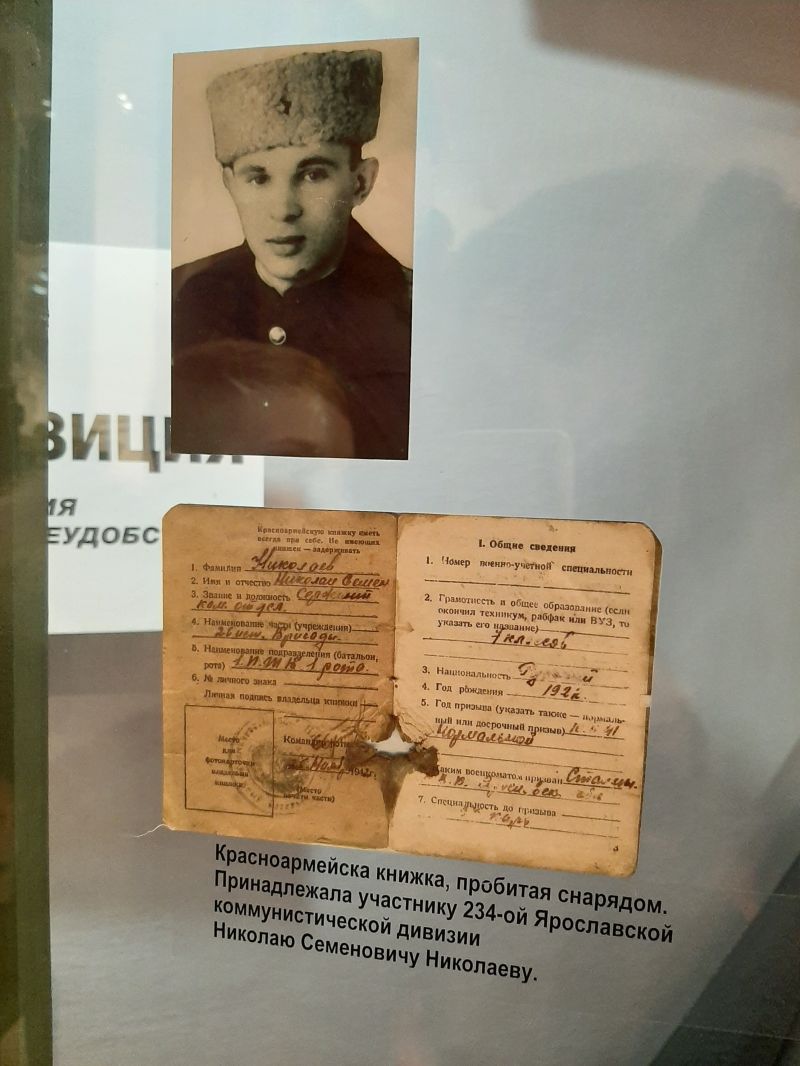 ЗИЦИЯ
ИЯ
ЕУДОБС
Красноармейскую книжку иметь
всегда при себе. Не имеющих
книжек — задерживать
1. Фамилия Николаев
2. Имя и отчество Николай Семен
3. Звание и должность Сержант
ком. отдел.
4. Наименование части (учреждения)
Бригады
5. Наименование подразделения (батальон,
рота) 1 рота.
6. № личного знака
Личная подпись владельца книжки
Место
для
фотокарточки
владельца
книжки
Командир
1942г.
(Место
печати части)
I. Общие сведения
1. Номер военно-учетной специальности
2. Грамотность и общее образование (если
окончил техникум, рабфак или ВУЗ, то
указать его название)
7 классов
3. Национальность
4. Год рождения 192
5. Год призыва (указать также — нормаль-
ный или досрочный призыв)
нормальной
Каким военкоматом призван
7. Специальность до призыва
3
Красноармейска книжка, пробитая снарядом.
Принадлежала участнику 234-ой Ярославской
коммунистической дивизии
Николаю Семеновичу Николаеву.